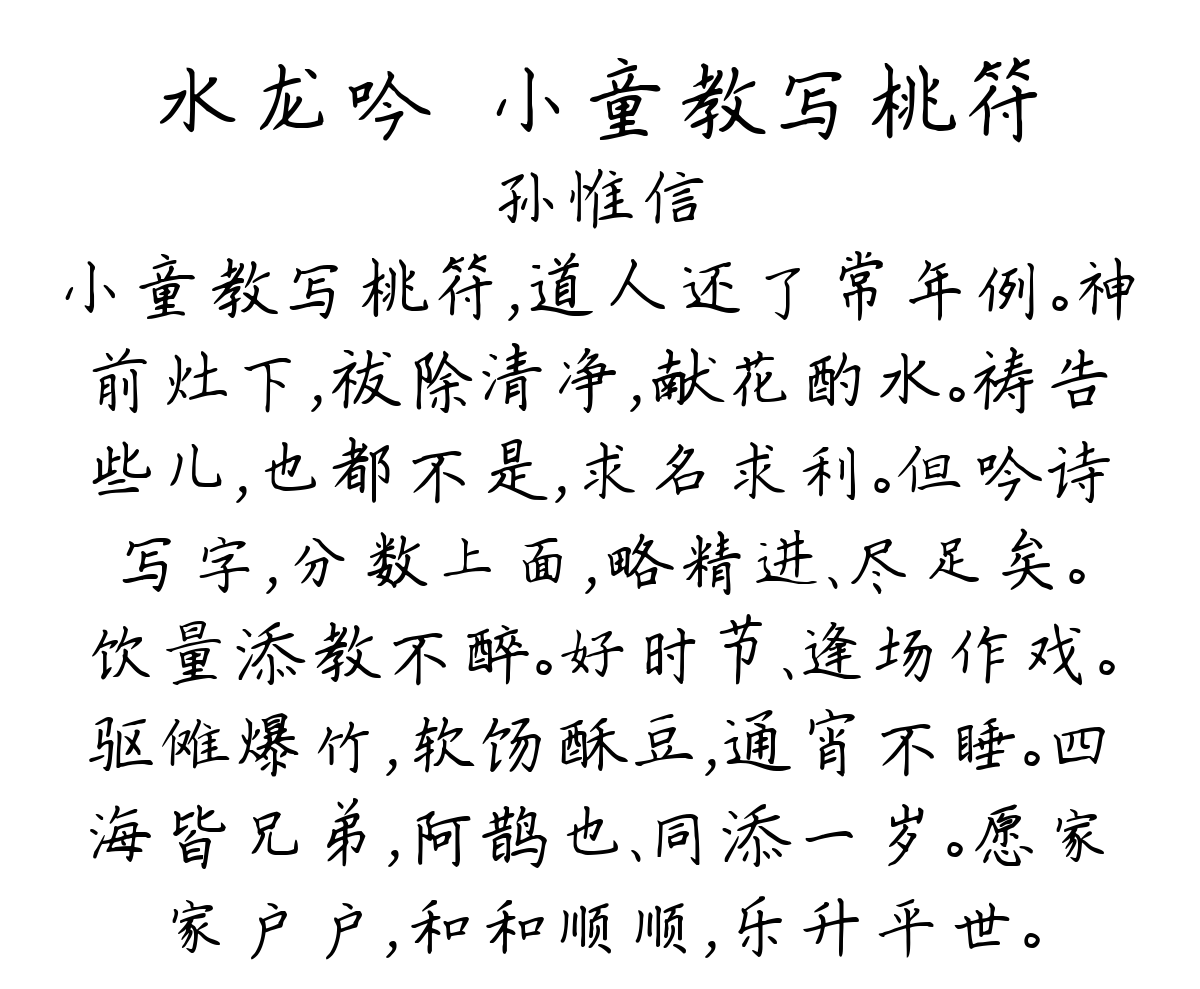 水龙吟 小童教写桃符
孙惟信
小童教写桃符,道人还了常年例。神
前灶下,祓除清净,献花酌水。祷告
些儿,也都不是,求名求利。但吟诗
写字,分数上面,略精进、尽足矣。
饮量添教不醉。好时节、逢场作戏。
驱傩爆竹,软饧酥豆,通宵不睡。四
海皆兄弟,阿鹊也、同添一岁。愿家
家户户,和和顺顺,乐升平世。